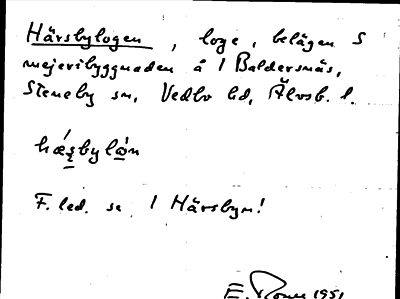 Härsbylogen, loge, belägen S
mejeribyggnaden å 1 Baldersnäs,
Steneby sn, Vedbo hd, Älvsb. l.
hǽşbylå̀n
F. led. se 1 Härsbyn!
E. 1951